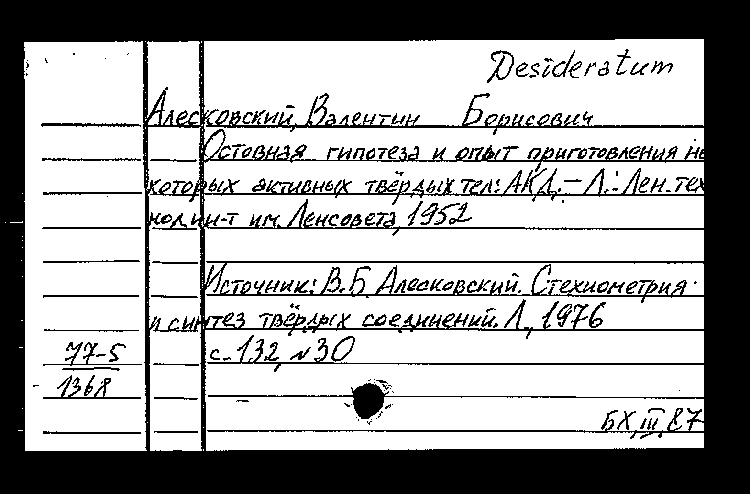 Desideratum
Алесковский, Валентин Борисович
Остовная гипотеза и опыт приготовления не
которых активных твёрдых тел: АКД. – Л.: Лен. тех
нол. ин-т им. Ленсовета, 1952
Источник: В.Б. Алесковский. Стехиометрия
и синтез твёрдых соединений. Л., 1976
77-5 с. 132, №30
1368
БХ, III, 87